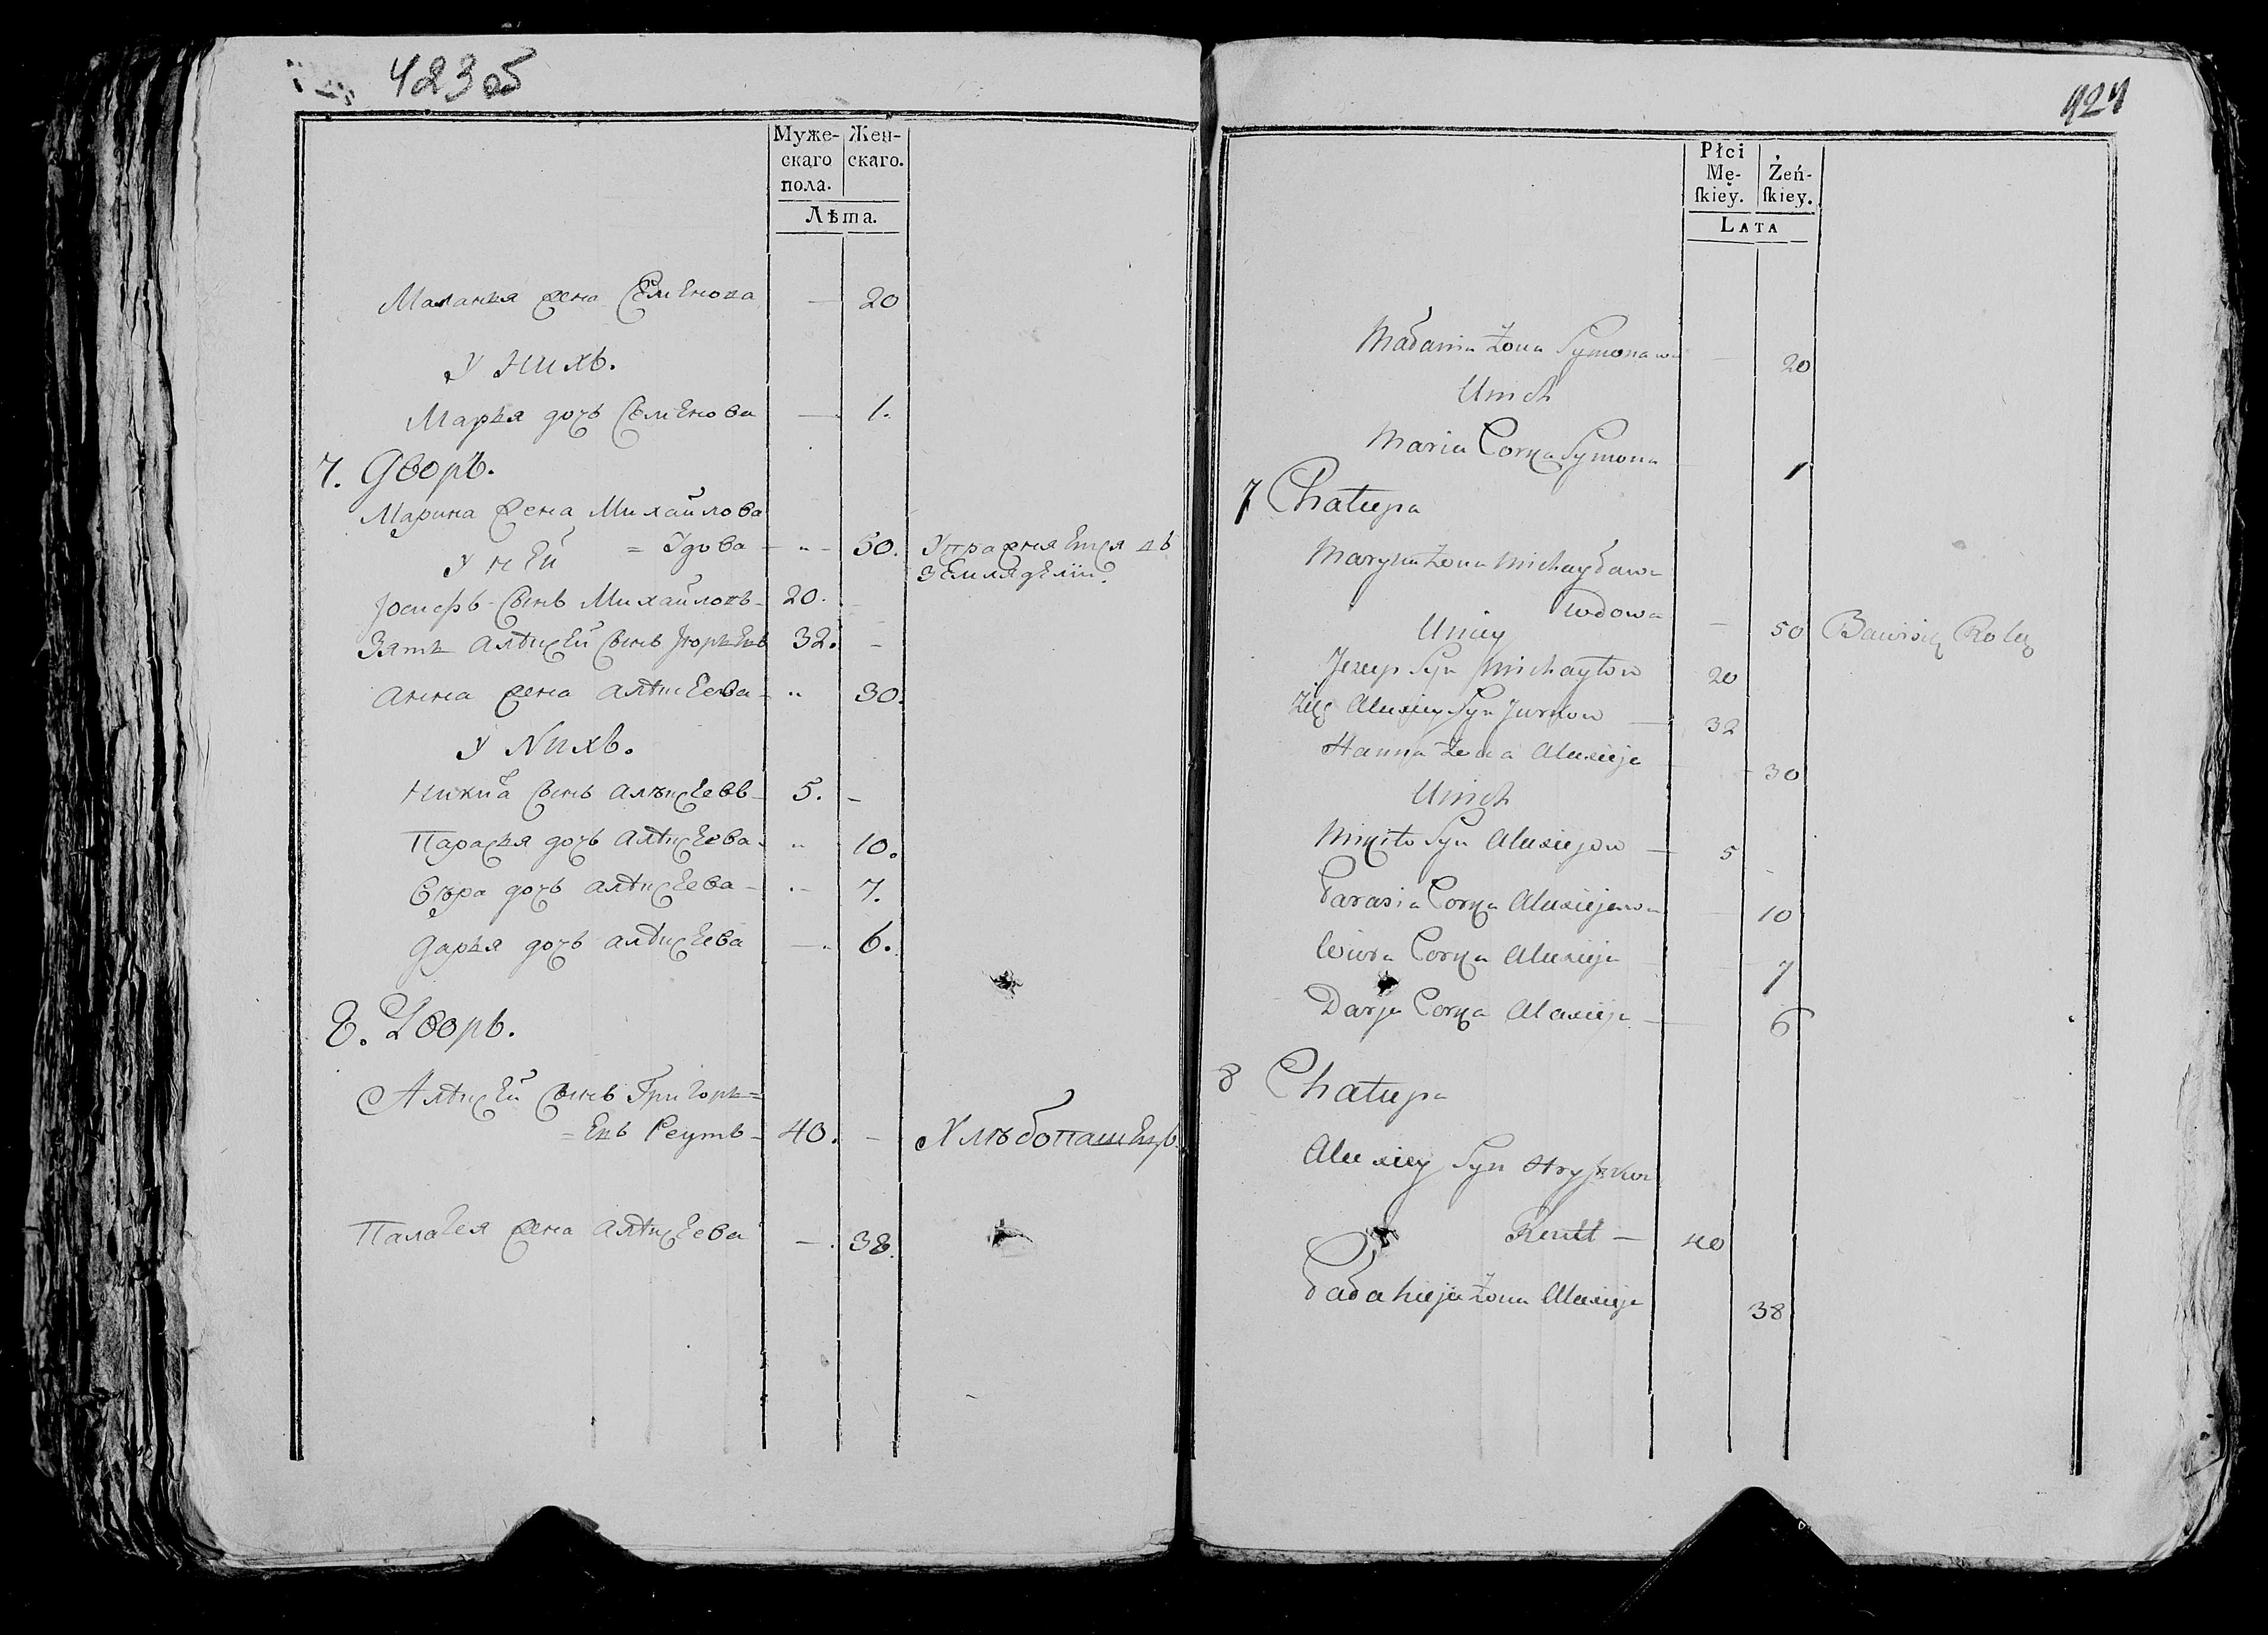 423об
Муже- Жен-
скаго скаго.
пола.
Лѣта.
Маланья жена Семенова — 20
У нихъ.
Марья дочь Семенова — 1.
7. Дворъ.
Марина жена Михайлова
= Удова - " - 50. Упражняется въ
У ней земляделіи.
Іосифъ сынъ Михайловъ - 20. -
Зять Алѣксей сынъ Юрьевъ 32. -
Анна жена Алѣксеева - " 30.
У нихъ.
Никита сынъ Алѣксеевъ - 5. -
Параскя дочь Алѣксеева - " 10.
Вѣра дочь Алѣксеева - 7.
Дарья дочь Алѣксеева — 6.
8. Дворъ.
Алѣксей сынъ Григорь=
=евъ Реутъ - 40. - Хлѣбопашецъ.
Палагея жена Алѣксеева — 38.
424
Płci
Mę- Żeń-
skiey. skiey.
LATA
Małania Żona Symonawa — 20
U nich
Maria Corka Symona 1
7 Chałupa
Maryna Żona Michayława
Wdowa — 50 Bawi się Rolą
U niey
Jezep Syn Michayłow 20
Zięć Alexiey Syn Jurkow — 32
Hanna Żona Alexieja - 30
U nich
Mikito Syn Alexiejow — 5 -
Parasia Corka Alexiejewa 10
Wiera Corka Alexieja 7
Darja Corka Alexieja — 6
8 Chałupa
Alexiey Syn Hryszkow
Reutt — 40
Pałahieja Żona Alexieja 38